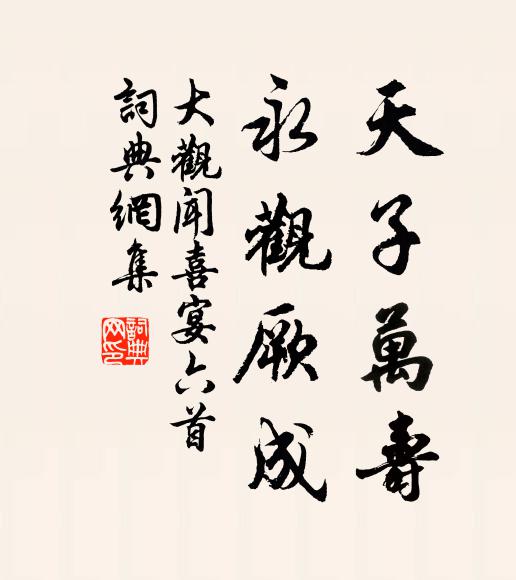 天子萬壽
永觀厥成
大觀聞喜宴六首
詞典網集
詞典网印